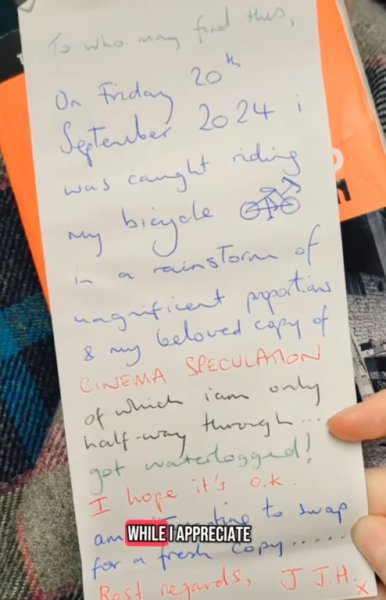 To who may find this,
On Friday 20th
September 2024 i
was caught riding
my bicycle
in a rainstorm of
magnificent proportions
& my beloved copy of
CINEMA SPECULATION
of which iam only
half-way through...
got waterlogged!
I hope it's o.k.
am to swap
WHILE I APPRECIATE
for a fresh copy.....
Best regards, J.J.H. x